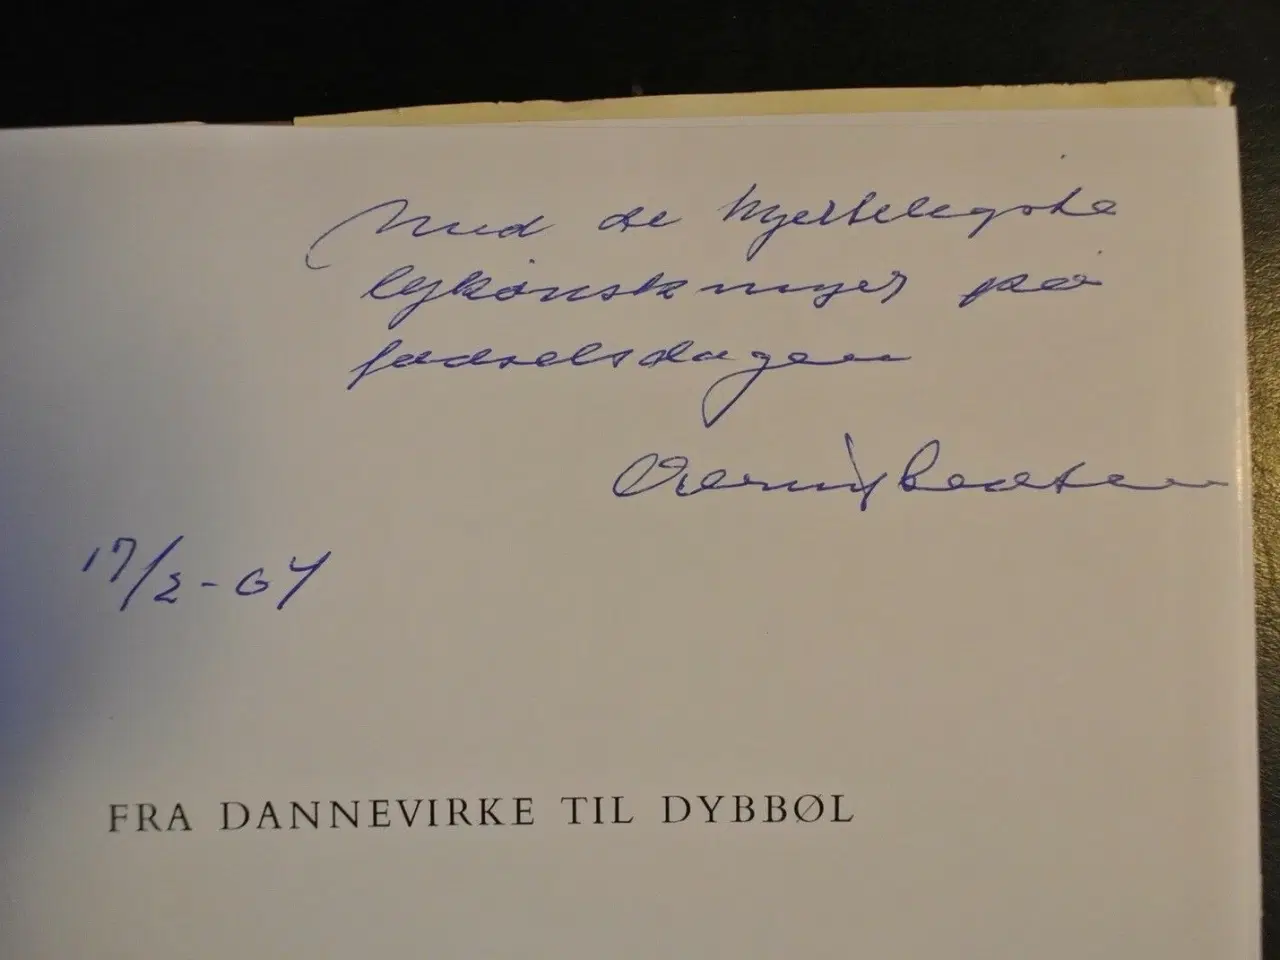 Med de hjerteligste
lykønskninger på
fødselsdagen
17/2-64
FRA DANNEVIRKE TIL DYBBØL